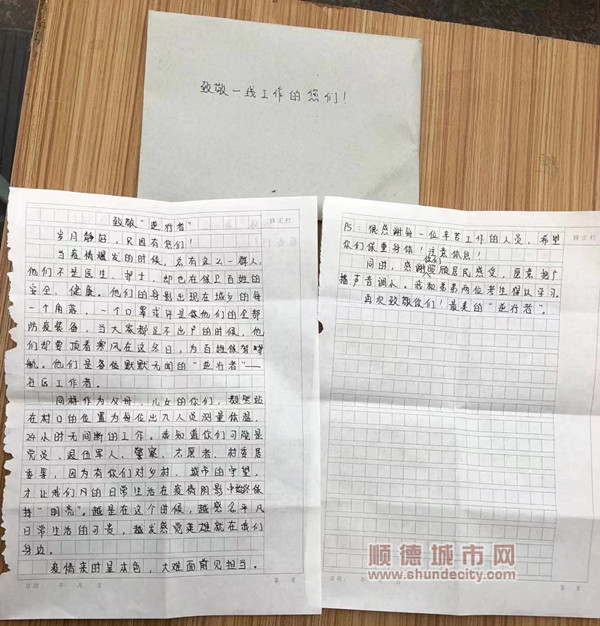 致敬一线工作的您们！
致敬“逆行者”
岁月静好，只因有你们！
当疫情爆发的时候，总有这么一群人，
他们不是医生、护士，却也在保卫百姓的
安全、健康。他们的身影出现在城乡的每
一个角落，一个口罩或许是做他们的全部
防疫装备，当大家都足不出户的时候，他
们却要顶着寒风在这冬日，为百姓保驾护
航。他们是各位默默无闻的“逆行者”——
社区工作者。
同样作为父母、儿女的你们，
在村口的位置为每位出入人员测量体温，
24小时无间断的工作。我知道你们可能是
党员、退伍军人、警察、志愿者、村委居
委等，因为有你们对乡村、城市的守望，
才让我们凡的日常生活在疫情阴影中始终保
持“明亮”。越是在这个时候，越感念平凡
日常生活的可贵，越发感觉英雄就在我们
身边。
疫情来时显本色，大难面前见担当。
PS：很感谢每一位辛苦工作的人员，希望
你们保重身体！注意休息！
同时，感谢你们照顾居民感受，愿意把广
播声音调小。我和弟弟两位考生得以学习。
再次致敬你们！最美的“逆行者”。
日期 年 月 日
第 页
顺德城市网
www.shundecity.com